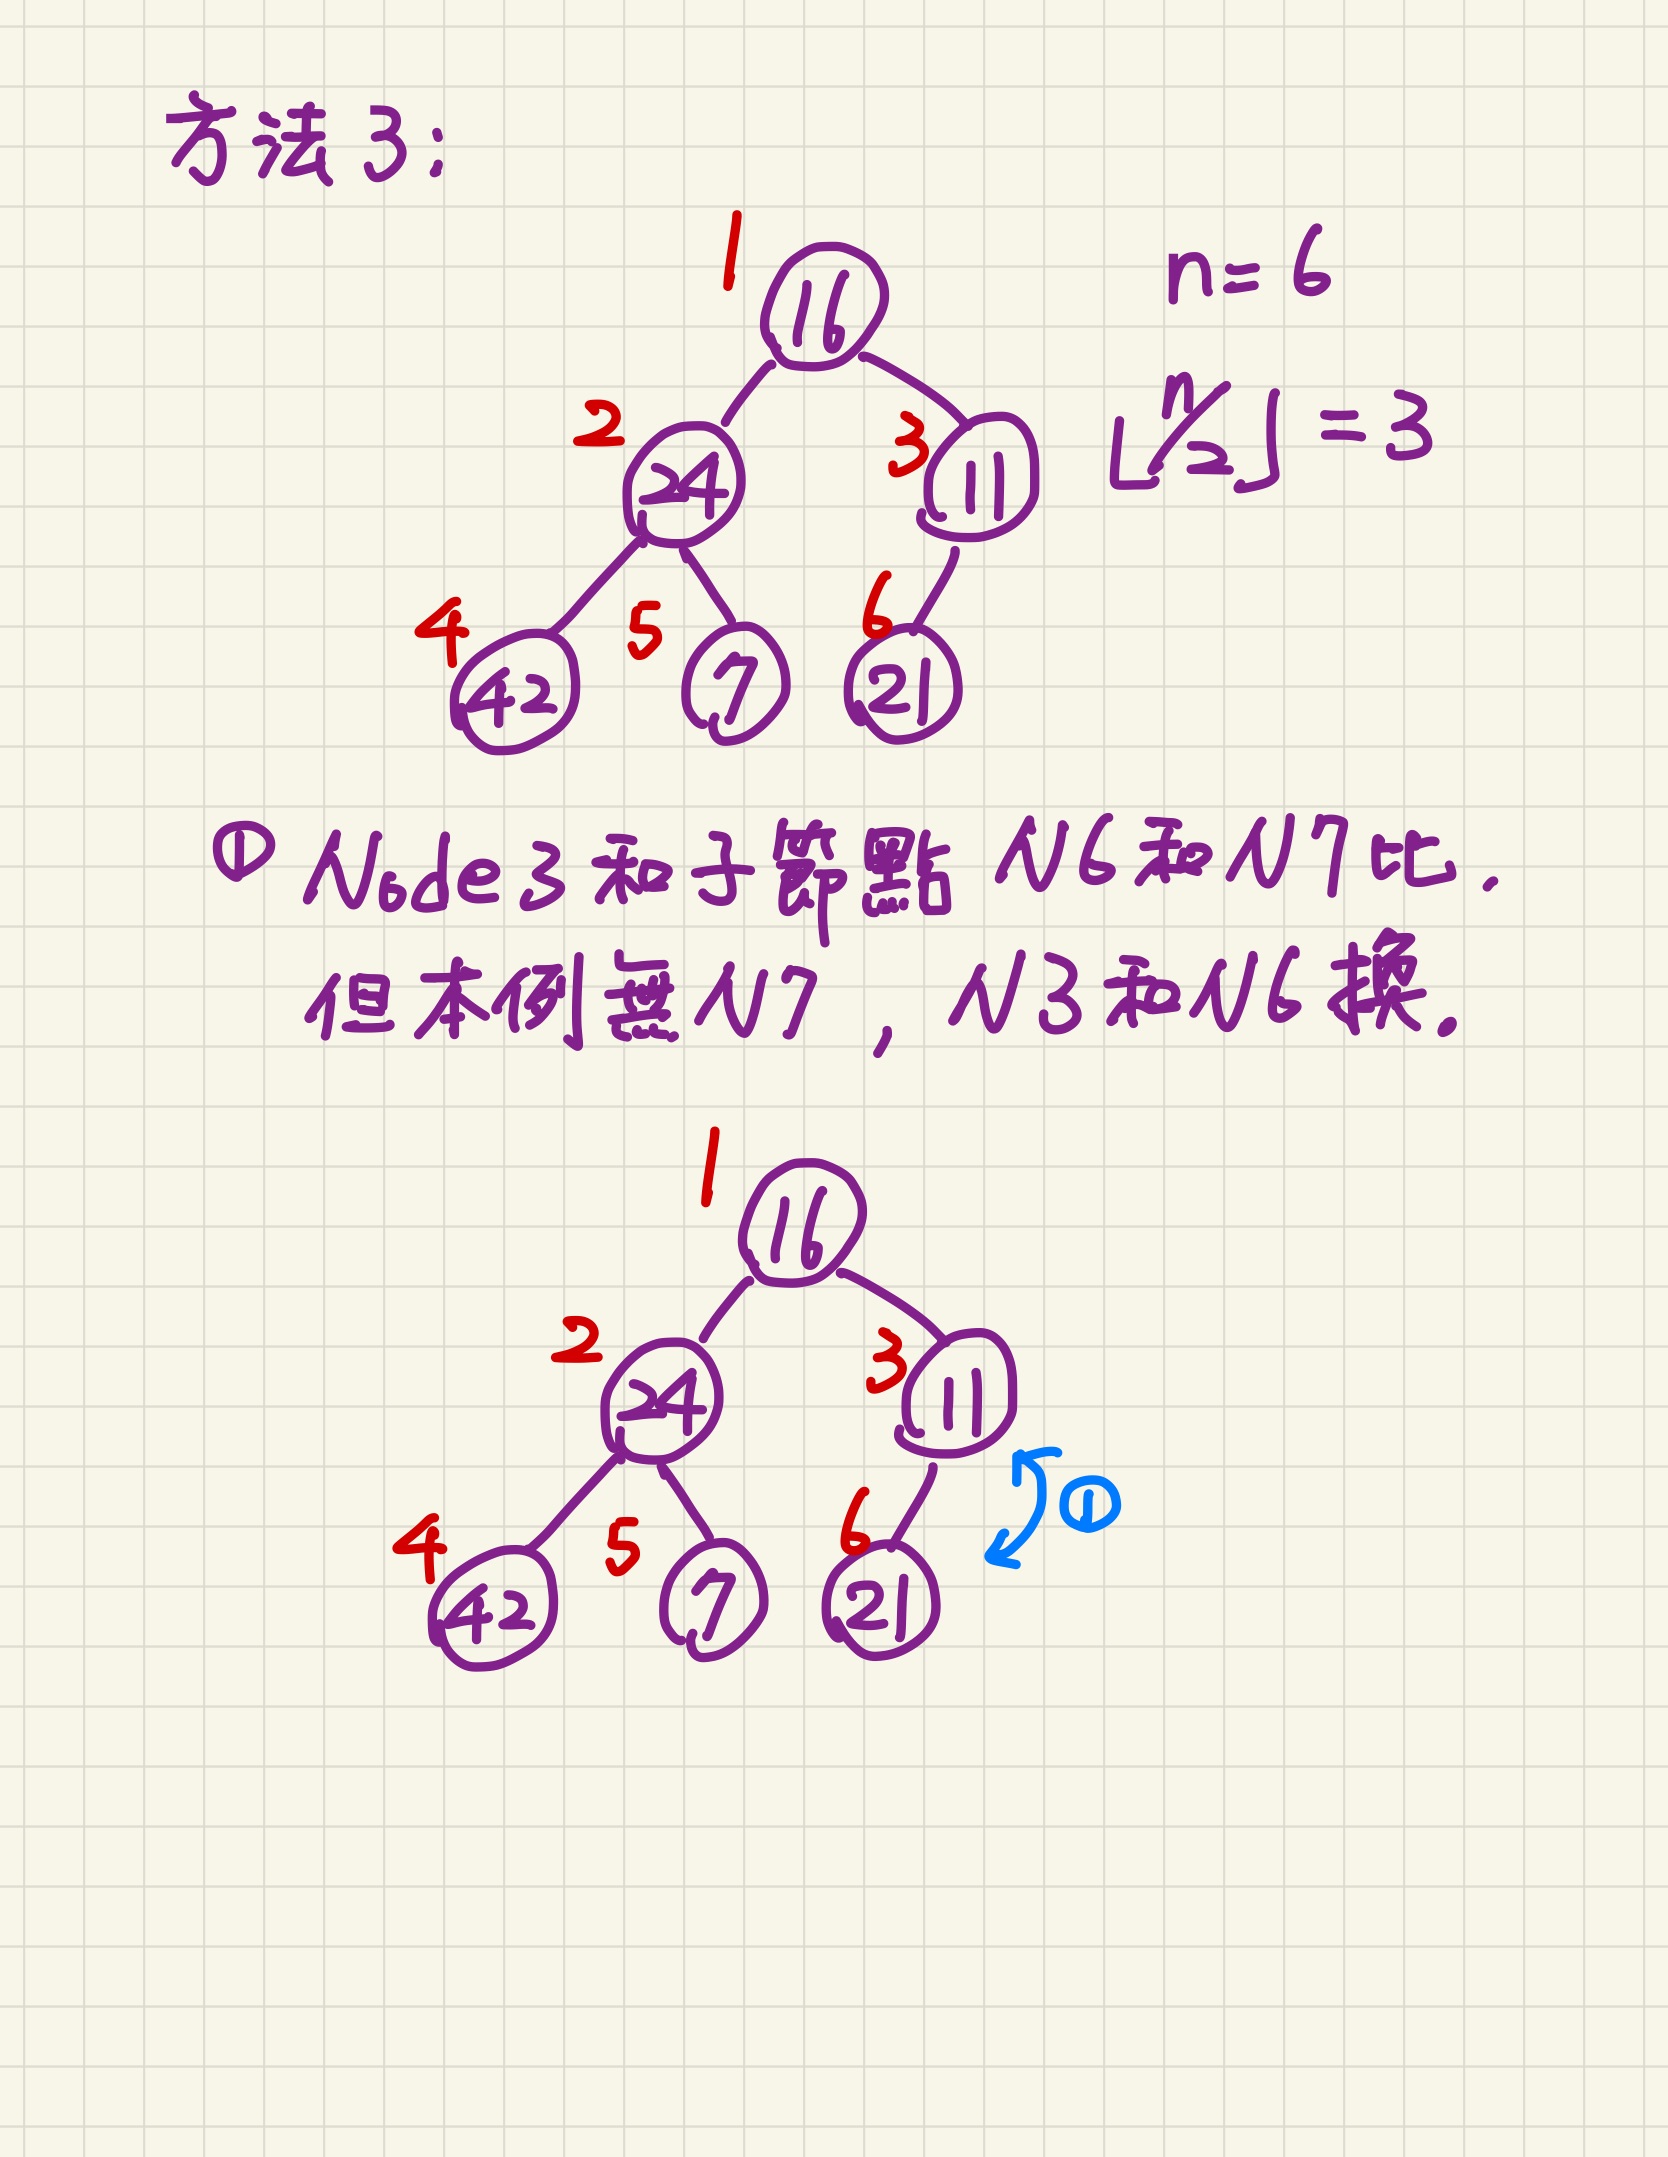 方法3:
1
16
n=6
2
24
3
11
⌊n/2⌋=3
4
42
5
7
6
21
① Node3和子節點 N6和N7比.
但本例無N7, N3和N6換.
1
16
2
24
3
11
①
4
42
5
7
6
21